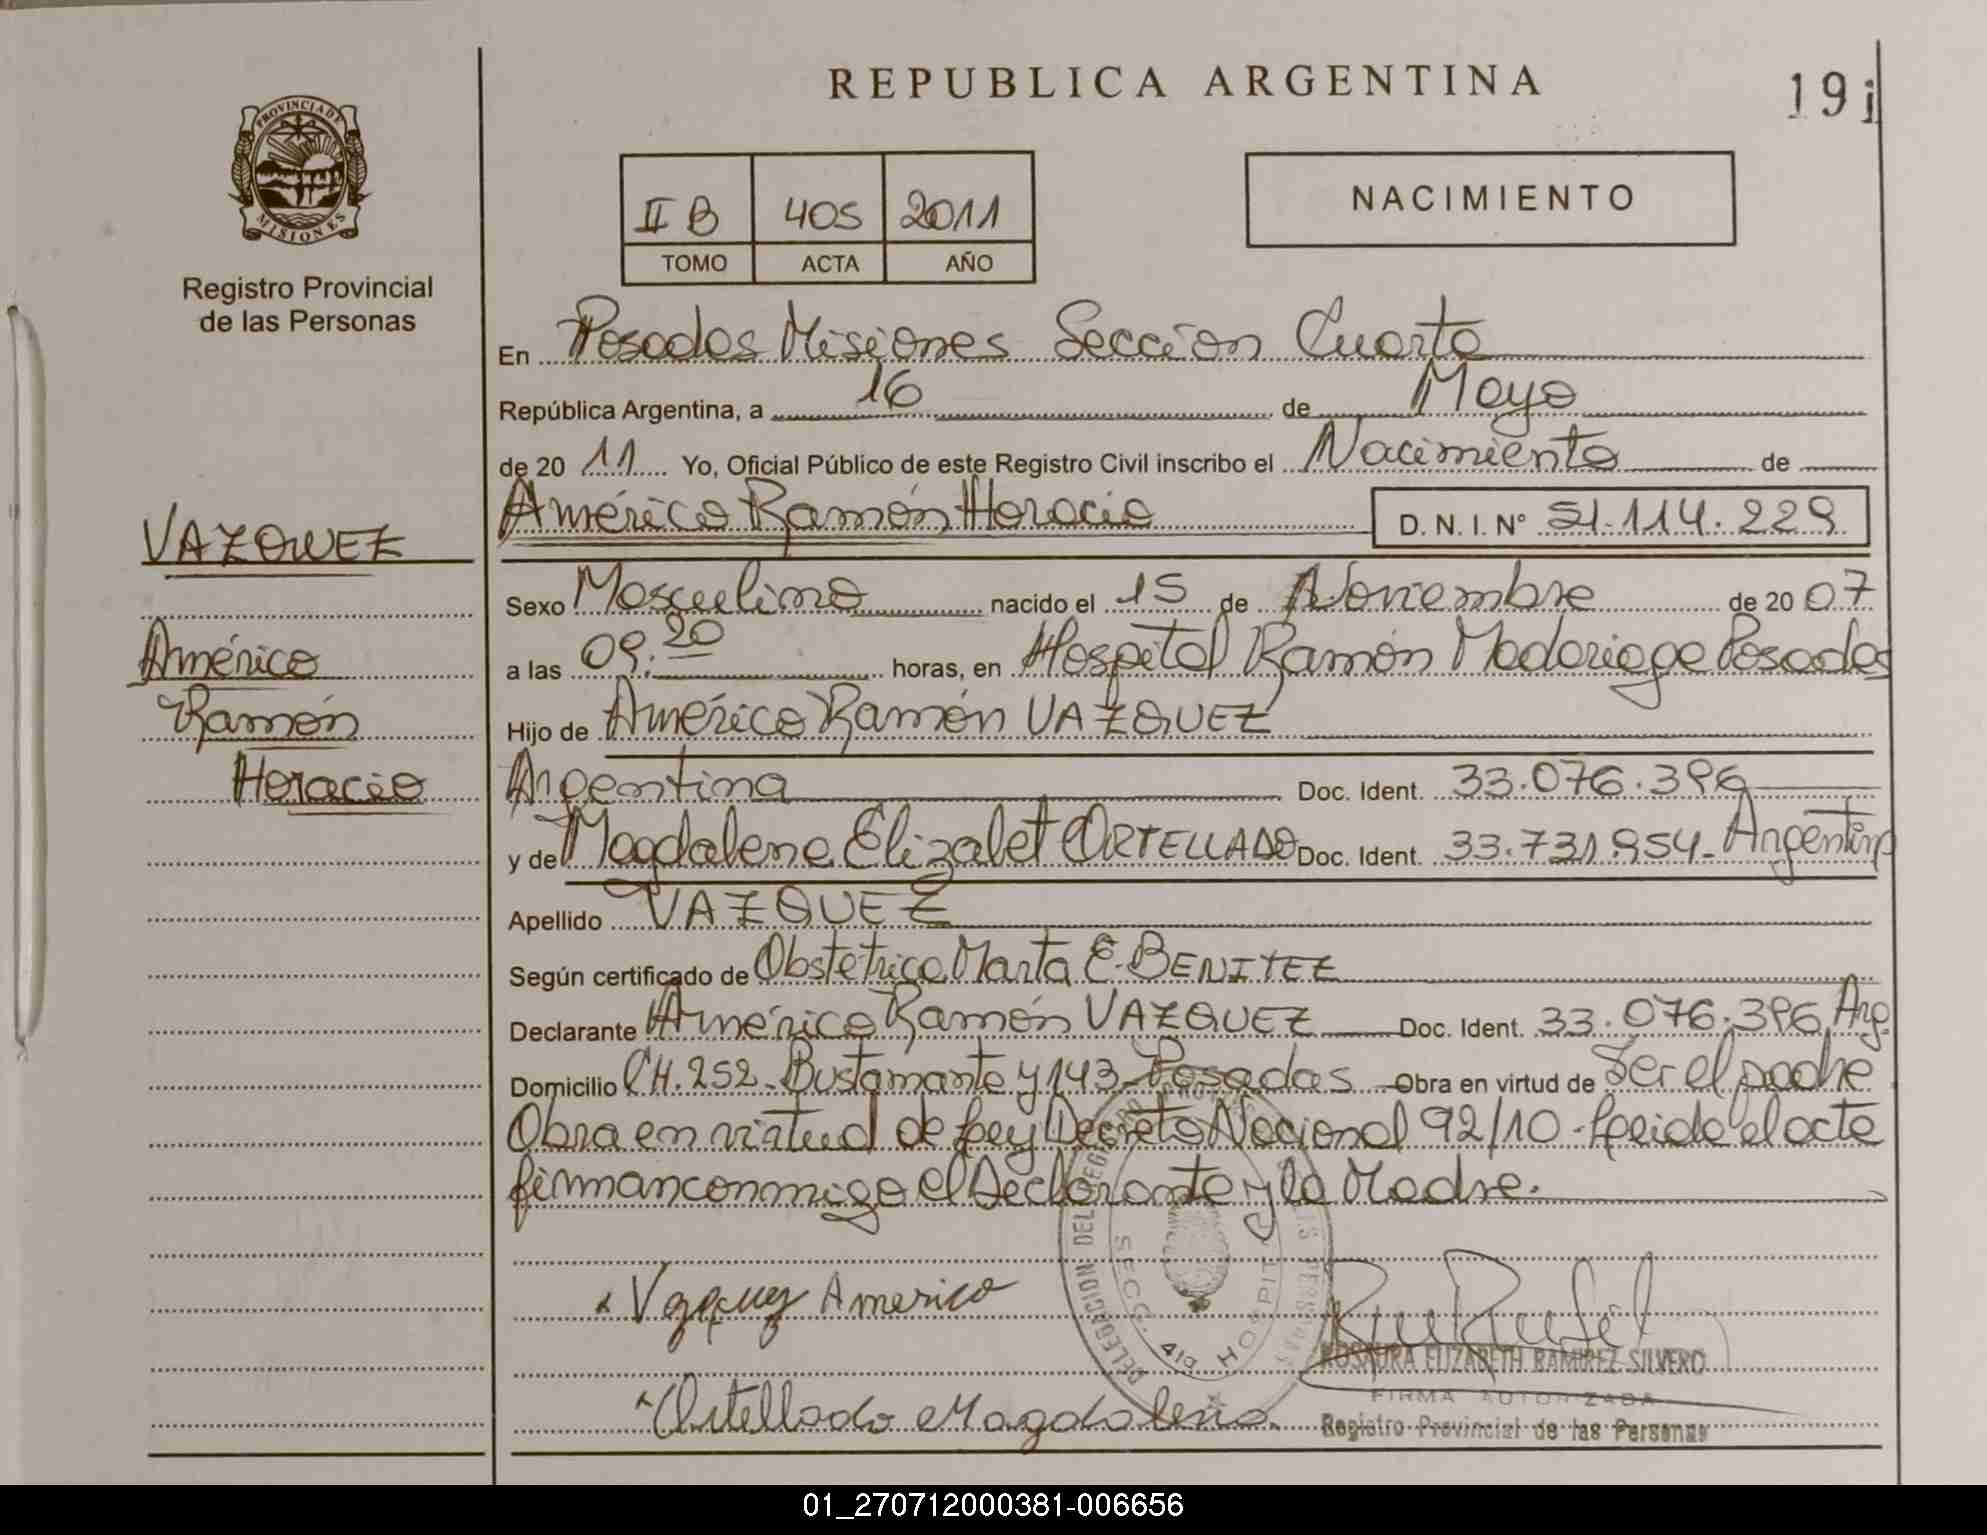 REPUBLICA ARGENTINA
19
PROVINCIA DE
MISIONES
Registro Provincial
de las Personas
II B 405 2011
TOMO ACTA AÑO
NACIMIENTO
En Posadas Misiones Sección Cuarta
República Argentina, a 16 de Mayo
de 20 11 Yo, Oficial Público de este Registro Civil inscribo el Nacimiento de
Américo Ramón Horacio D. N. I. N° 51.114.229
VAZQUEZ
Américo
Ramón
Horacio
Sexo Masculino nacido el 15 de Noviembre de 20 07
a las 09:20 horas, en Hospital Ramón Madariaga Posadas
Hijo de Américo Ramón VAZQUEZ
Argentina Doc. Ident. 33.076.396
y de Magdalena Elizabet ORTELLADO Doc. Ident. 33.731.954- Argentina
Apellido VAZQUEZ
Según certificado de Obstétrica Marta E. BENITEZ
Declarante Américo Ramón VAZQUEZ Doc. Ident. 33.076.396 Arg.
Domicilio CH. 252 - Bustamante y 143 - Posadas Obra en virtud de Ser el padre
Obra en virtud de Ley Decreto Nacional 92/10 - Leída el acta
firman conmigo el Declarante y la Madre.
Vazquez Americo
Ortellado Magdalena
DELEGACION DEL REGISTRO
SECC. 4ta HOSPIT
ROSAURA ELIZABETH RAMIREZ SILVERO
FIRMA AUTORIZADA
Registro Provincial de las Personas
01_270712000381-006656